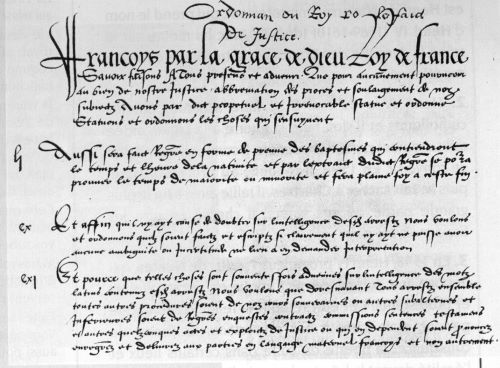 Ordonnan du Roy
de Justice.
Francoys par la grace de dieu Roy de france
Savoir faisons A tous presens et advenir Que pour aucunement pourveoir
au bien de nostre Justice abbreviation des proces et soulagement de noz
subiectz Avons par edict perpetuel et irrevocable statue et ordonne
Statuons et ordonnons les choses qui sensuyvent
li Aussi sera faict Regre en forme de preuve des baptesmes qui contiendront
le temps et lheure dela nativite et par lextraict dudict Regre se pora
prouver le temps de maiorite ou minorite et fera plaine foy a ceste fin
cx Et affin quil ny ayt cause de doubter sur lintelligence desdz arrestz Nous voulons
et ordonnons quilz soient faictz et escriptz si clairement quil ny ayt ne puisse avoir
aucune ambiguite ou Incertitude ne lieu a en demander Interpretation
cxi Et pource que telles choses sont souventesfois advenues sur lintelligence des motz
latins contenuz esdz arrestz Nous voulons que doresnavant Tous arrestz ensemble
toutes autres procedures soient de noz cours souveraines ou autres subalternes et
Inferieures soient de Regres enquestes contractz commissions sentences testamens
et autres quelzconques actes et exploictz de Justice ou qui en dependent soient prononcez
enregrez et delivrez aux parties en langaige maternel francoys et non autrement